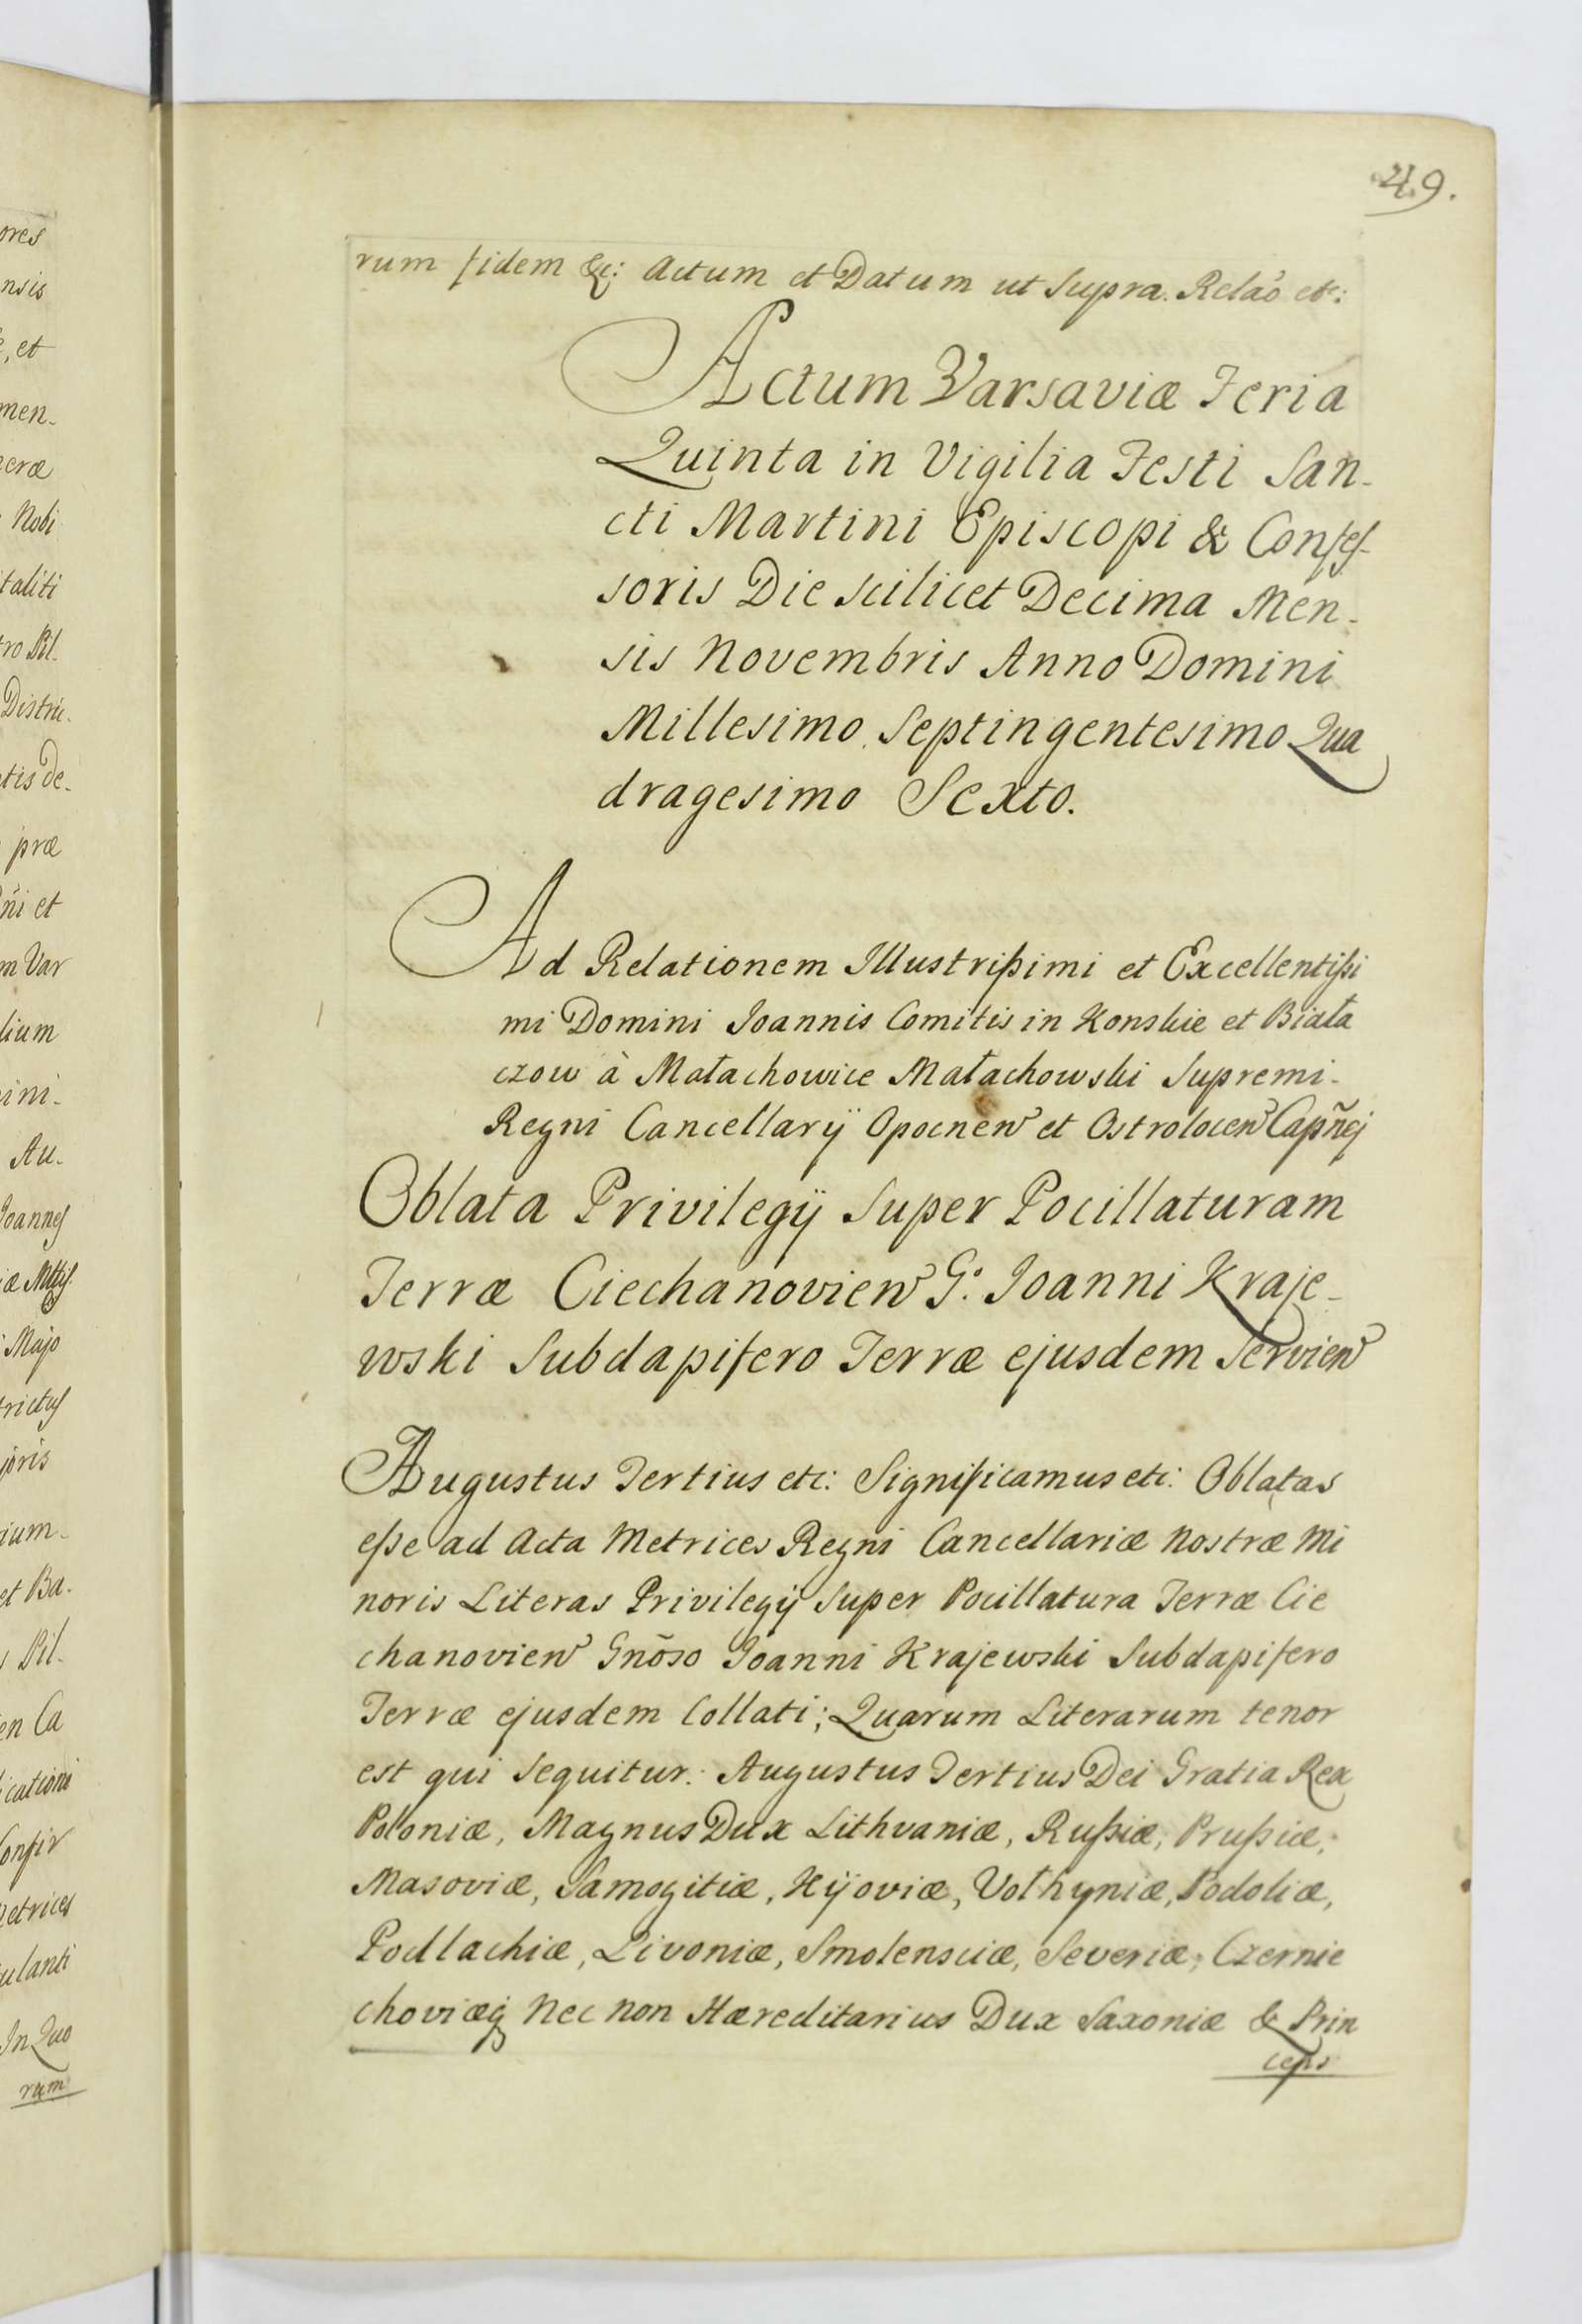 49.
rum fidem &c: Actum et Datum ut Supra. Relaõ etc:
Actum Varsaviæ Feria
Quinta in Vigilia Festi San-
cti Martini Episcopi & Confes-
soris Die scilicet Decima Men-
sis Novembris Anno Domini
Millesimo Septingentesimo Qua
dragesimo Sexto.
Ad Relationem Illustrißimi et Excellentißi
mi Domini Joannis Comitis in Konskie et Biała
czow à Małachowice Małachowski Supremi-
Regni Cancellarÿ Opocnen et Ostrolocen Capñej
Oblata Privilegÿ Super Pocillaturam
Terræ Ciechanovien G: Joanni Kraje-
wski Subdapifero Terræ ejusdem Servien
Augustus Tertius etc: Significamus etc: Oblatas
eße ad Acta Metrices Regni Cancellariæ Nostræ Mi
noris Literas Privilegÿ Super Pocillatura Terræ Cie
chanovien Gnõso Joanni Krajewski Subdapifero
Terræ ejusdem Collati; Quarum Literarum tenor
est qui sequitur: Augustus Tertius Dei Gratia Rex
Poloniæ, Magnus Dux Lithvaniæ, Rußiæ, Prußiæ,
Masoviæ, Samogitiæ, Kijoviæ, Volhyniæ, Podoliæ,
Podlachiæ, Livoniæ, Smolensciæ, Severiæ, Czernie
choviæq Nec non Hæreditarius Dux Saxoniæ & Prin
ceps
ores
nsis
, et
men-
eræ
Nobi
taliti
ro Pil-
Distric-
tis de-
præ
ñi et
m Var
lium
ini-
Au-
Joannes
Majo
rictus
joris
ium-
et Ba-
Pil-
en Ca
icationi
Confir
etrices
ulanti
In Quo
rum